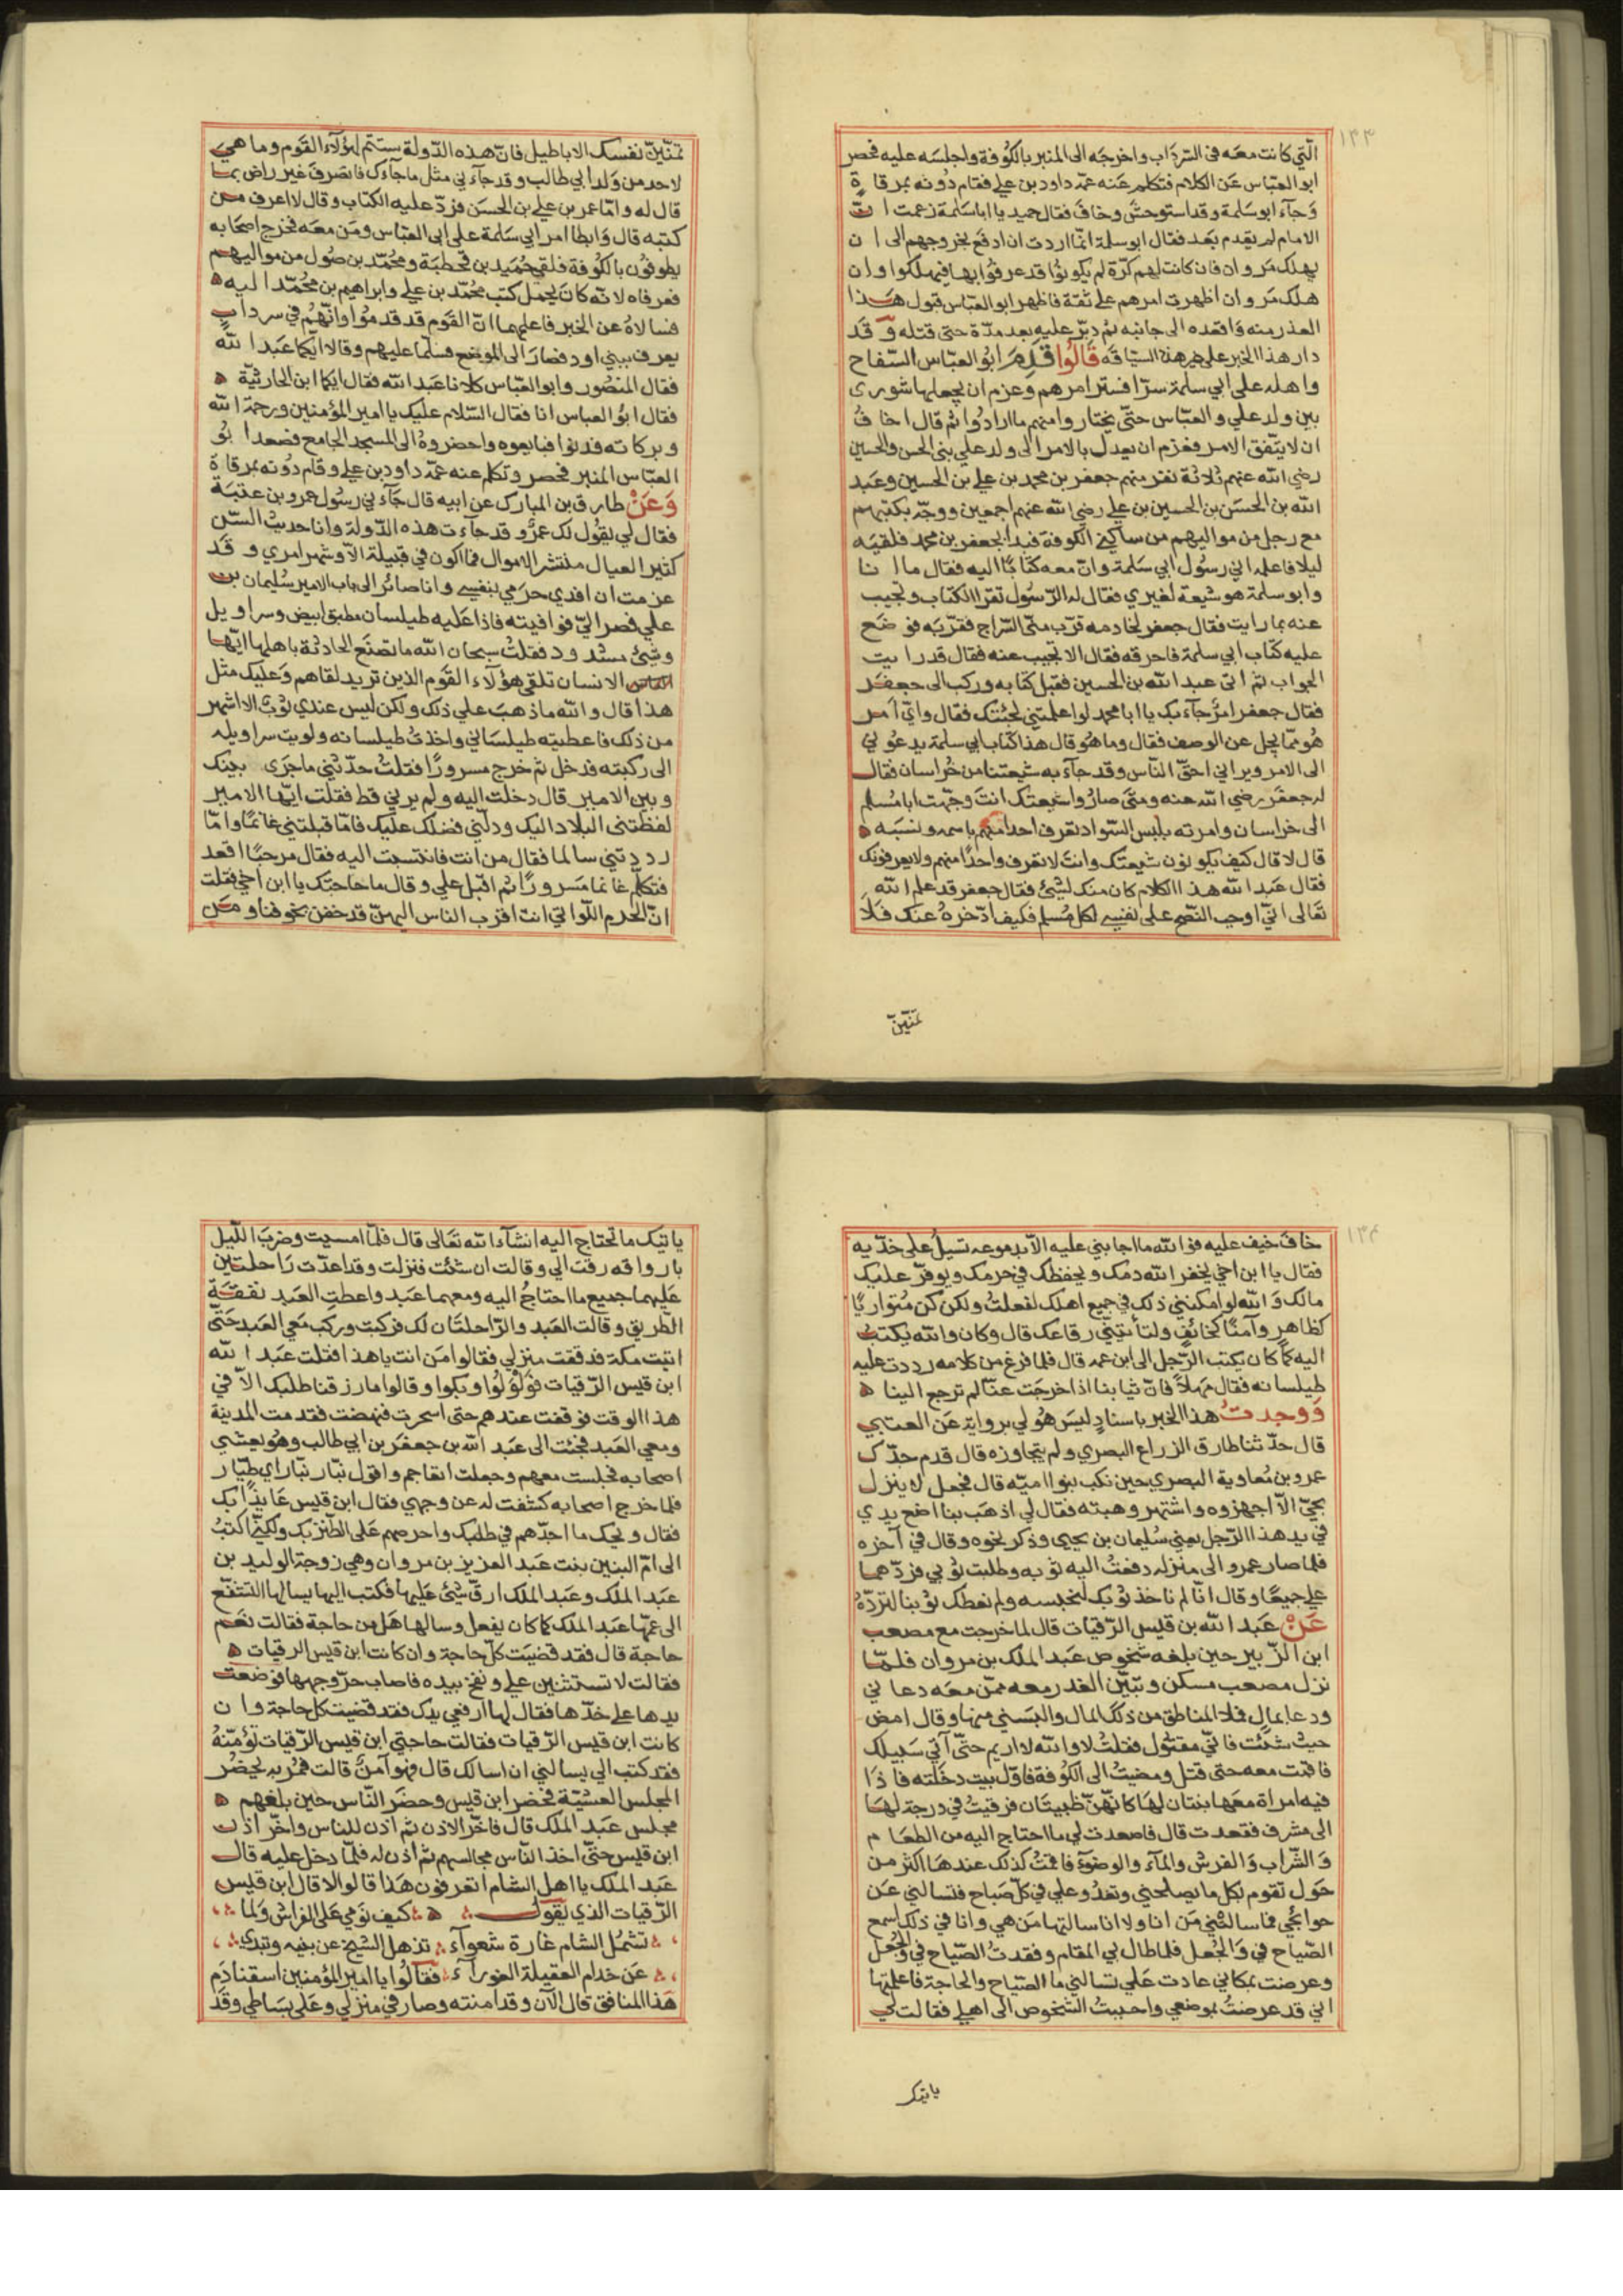 ١٣٣
الّتي كانت معَه فى السّردَاب واخرجَه الى المنبر بالكُوفة واجلسَه عليه فحصر
ابو العبّاس عَن الكلام فتكلم عَنه عمّه داود بن على فقام دُونه بمرقاةٍ
وَجآء ابو سَلمة وقد استوحشَ وخافَ فقال حميد يا ابا سَلمة زعمت انّ
الامام لم يقدم بَعد فقال ابو سلمة انّما اردت ان ادفع بخروجهم الى ان
يهلك مَروان فان كانت لهم كرّة لم يكونوُا قد عرفوُا بها فيهلكوا وان
هلك مَروان اظهرت امرهم على ثقة فاظهر ابو العبّاس قبول هَذا
العذر منه وَاقعده الى جانبه ثمّ دبّر عليه بعد مدّة حتى قتله وَقَد
دار هذا الخبر على غير هذه السّياقه قَالُوا قَدِمَ ابُو العبّاس السّفاح
واهله على ابي سلمة سرّا فستر امرهم وعزم ان يجعلها شورى
بين ولد علي والعبّاس حتّى يختاروا منهم ما ارادُوا ثم قال اخافُ
ان لا يتّفق الامر فعزم ان يعدل بالامر الى ولد علي بني الحسن والحسين
رضي الله عنهم ثلاثة نفر منهم جعفر بن محمد بن علي بن الحسين وعَبد
الله بن الحسَن بن الحسين بن علي رضي الله عنهم اجمعين ووجّه بكتبهم
مع رجل من مواليهم من ساكني الكوفة فبدا بجعفر بن محمد فلقيَه
ليلا فاعلمه اني رسُول ابي سَلمة وانّ معه كتَابًا اليه فقال ما انا
وابو سلمة هو شيعة لغيري فقال له الرّسُول تقرا الكتاب وتجيب
عنه بما رايت فقال جعفر لخادمه قرّب منّى السّراج فقرّبَه فوضَع
عليه كتاب ابي سلمة فاحرقه فقال الا تجيب عنه فقال قد رايت
الجواب ثمّ اتى عبد الله بن الحسين فقبل كتابه وركب الى جعفَر
فقال جعفر امرٌ جآء بك يا ابا محمد لو اعلمتني لجئتك فقال وايّ امر
هُو ممّا يجل عن الوصف فقال وما هُو قال هذا كتاب ابي سلمة يدعوني
الى الامر ويراني احقّ النّاس وقد جآء به شيعتنا من خُراسان فقال
له جعفَر رضي الله عنه ومتَى صارُوا شيعتك انتَ وجّهت ابا مُسلم
الى خراسان وامرته بلبس السّواد تعرف احدا منهم باسمه ونسَبه
قال لا قال كيف يكونون شيعتك وانتَ لا تعرف واحدًا منهم ولا يعرفونك
فقال عَبد الله هذا الكلام كان منك لشئ فقال جعفر قد علم الله
تعَالى انّي اوجب النّصح على نفسي لكل مُسلم فكيف ادّخرهُ عنك فَلَا
تمنّينّ
تمنّينّ نفسك الاباطيل فانّ هذه الدّولة ستتمّ لهؤلآء القَوم وما هيَ
لاحد من وَلد ابي طالب وقد جآءني مثل ما جآءك فانصرفَ غير راضٍ بما
قال له وامّا عمر بن علي بن الحسَن فردّ عليه الكتاب وقال لا اعرف من
كتبه قال وَابطا امر ابي سَلمة على ابى العبّاس ومَن معَه فخرج اصحَابه
يطوفُون بالكُوفة فلقي حُمَيد بن قحطبَة ومحُمّد بن صُول من مواليهم
فعرفاه لانّه كانَ يحمل كتب محُمّد بن علي وابراهيم بن محُمّد اليه
فسالاهُ عن الخبر فاعلمهما انّ القَوم قد قدموُا وانّهُم في سردابٍ
يعرف ببني اود فصارَا الى الموضع فسلّما عليهم وقالا ايّكما عَبد الله
فقال المنصُور وابو العبّاس كلانا عَبد الله فقال ايكما ابن الحارثيّة
فقال ابُو العباس انا فقال السّلام عليك يا امير المؤمنين ورحمة الله
وبركاته فدنوا فبايعوه واحضروهُ الى المسجد الجامع فصعد ابُو
العبّاس المنبر فحصر وتكلم عنه عمّه داود بن علي وقام دُونه بمرقاة
وَعَنْ طارق بن المبارك عن ابيه قال جَآءني رسُول عمرو بن عتبَة
فقال لي يقوُل لك عمرُو قد جآءت هذه الدّولة وانا حديث السّن
كثير العيال منتشر الاموال فما اكون في قبيلة الاّ وشهر امري وقَد
عزمت ان افدي حرَمي بنفسي وانا صائر الى باب الامير سُليمان بن
علي فصر اليّ فوافيته فاذا عَليه طيلسان مطبق ابيض وسراويل
وشئ مسدود فقلتُ سبحان الله ما تصنَع الحادثة باهلها ابهذا
اللباس الانسان تلقى هؤلآء القَوم الذين تريد لقاهم وَعليك مثل
هذا قال والله ماذهبَ علي ذلك ولكن ليس عندي ثوبٌ الا اشهر
من ذلك فاعطيته طيلسَاني واخذتُ طيلسانه ولويت سراويله
الى ركبته فدخل ثم خرج مسرورًا فقلتُ حدّثني ما جَرى بينك
وبين الامير قال دخلت اليه ولم يرني قط فقلت ايّها الامير
لفظتنى البلاد اليك ودلّني فضلك عليك فامّا قبلتني غانمًا وامّا
رددتني سالما فقال من انت فانتسبت اليه فقال مرحبًا اقعد
فتكلّم غانما مسَرورًا ثم اقبل علي وقال ما حاجتك يا ابن اخي فقلت
انّ الحرم اللّواتي انت اقرب الناس اليهنّ قد خفن بخوفنا ومَن
١٣٤
خافَ خيف عليه فوالله ما اجابني عليه الاّ بدموعه تسيلُ على خدّيه
فقال يا ابن اخي يحقر الله دمك ويحفظك في حرمك ويوفر عليك
مالك وَالله لو امكننى ذلك في جميع اهلك لفعلتُ ولكن كن مُتواريًا
كظاهرٍ وآمنًا كخائفٍ ولتأتيَنّي رقاعك قال وكان والله يكتبُ
اليه كما كان يكتب الرّجل الى ابن عمه قال فلما فرغ من كلامه رددت عليه
طيلسانه فقال مَهلاً فانّ ثيابنا اذا خرجَت عنّا لم ترجع الينا
وَوجدتُ هذا الخبر باسنادٍ ليسَ هُو لي برواية عَن العتبي
قال حدّثنا طارق الزراع البصري ولم يتجاوزه قال قدم جدّك
عمرو بن مُعاوية البصري حين نكب بنوا اميّه قال فجعل لا ينزل
بحيّ الاّ اجهزوه واشتهر وهبته فقال لي اذهَب بنا اضع يدي
في يد هذا الرّجل يعني سُليمان بن يحيى وذكر نحوه وقال في آخره
فلما صار عمرو الى منزله دفعتُ اليه ثوبه وطلبت ثوبي فردّهما
علي جميعًا وقال انّا لم ناخذ ثوبك لنحبسه ولم نعطك ثوبنا لتردّهُ
عَنْ عَبد الله بن قيس الرّقيات قال لما خرجت مع مصعب
ابن الزّبير حين بلغه شخُوص عَبد الملك بن مروان فلمّا
نزل مصعب مسكن وتبيّن الغدر معه ممّن معَه دعاني
ودعا بمال فملا المناطق من ذلك المال والبسَني منها وقال امض
حيث شئت فاني مقتُول فقلتُ لا والله لا اريم حتّى آتي سَبيلك
فاقمت معه حتى قتل ومضيتُ الى الكُوفة فاوّل بيت دخَلته فاذَا
فيه امراة معَها بنتان لها كانّهنّ ظبيتَان فرقيتُ في درجة لهَا
الى مشرف فقعدت قال فاصعدت لي ما احتاج اليه من الطعَام
وَالشّراب وَالفرش والمآء والوضوء فاقمتُ كذلك عندهَا اكثر من
حَول تقوم بكل ما يصلحني وتغدُو علي في كلّ صَباح فتسالني عَن
حوائجى فما سالتْني مَن انا ولا انا سالتها مَن هي وانا في ذلك اسمع
الصّياح فيَ وَالجُعل فلما طال بي المقام وفقدتُ الصّياح في والجُعل
وعرضت بمكاني عادت عَلي تسالني ما الصّباح والحاجة فاعلمتها
اني قد عرضتُ بموضعي واحببتُ الشخوص الى اهلي فقالت لي
ياتيك
ياتيك ما تحتاج اليه انشآء الله تعَالى قال فلمّا امسيت وضربَ اللّيل
بارواقه رقت الي وقالت ان شئت فنزلت وقد اعدّت رَاحلتين
عَليهما جميع ما احتاجُ اليه ومعهما عَبد واعطت العَبد نفقَة
الطّريق وقالت العَبد والرّاحلتَان لك فركبت وركب مَعي العَبد حَتّى
اتيت مكة فدققت منزلي فقالوا مَن انت يا هذا فقلت عَبد الله
ابن قيس الرّقيات فوَلولُوا وبكوا وقالوا ما رزقنا طلبك الاّ في
هذا الوقت فوقفت عندهم حتى اسحرت فنهضت فقدمت المدينة
ومعي العَبد فجئت الى عَبد الله بن جعفَر بن ابي طالب وهُو يعشي
اصحابه فجلست معهم وجعلت اتعاجم واقول نيّار نيّار اي طيّار
فلما خرج اصحابه كشفت له عن وجهي فقال ابن قيس عَايذًا بك
فقال ويحك ما اجدّهم في طلبك واحرصهم عَلى الظّفر بك ولكني اكتبُ
الى امّ البنين بنت عَبد العزيز بن مروان وهي زوجة الوليد بن
عبَد الملك وعَبد الملك ارقّ شئ عَليها فكتب اليها يسالها التشفّع
الى عمّها عَبد الملك كما كان يفعل وسالها هَل من حاجة فقالت نعَم
حاجة قال فقد قضيَت كلّ حاجة وان كانت ابن قيس الرقيات
فقالت لا تستثنين علي ونفخ بيده فاصاب حرّ وجهها فوضعت
يدها على خدّها فقال لها ارفعي يدك فقد قضيت كل حاجة وان
كانت ابن قيس الرّقيات فقالت حاجتي ابن قيس الرّقيات تؤمّنهُ
فقد كتب الي يسالني ان اسالك قال فهو آمنٌ قالت فمُر به يحضُر
المجلس العشيّة فحضر ابن قيس وحضَر النّاس حين بلغهم
مجلس عَبد الملك قال فاخّر الاذن ثم اذن للناس واخّر اذن
ابن قيس حتىّ اخذ النّاس مجالسهم ثم اذن له فلمّا دخل عليه قال
عَبد الملك يا اهل الشام اتعرفون هَذا قالوا لا قال ابن قيس
الرّقيات الذي يقَول كيف نَومي عَلى الفراش وَلما
تشمُل الشام غارة شعوآء تذهل الشيخ عن بنيه وتبدي
عَن خدام العقيلة العذرآء فقَالُوا يا امير المؤمنين اسقنا دَم
هَذا المنافق قال الآن وقد امنته وصار في منزلي وعَلى بسَاطي وقَد